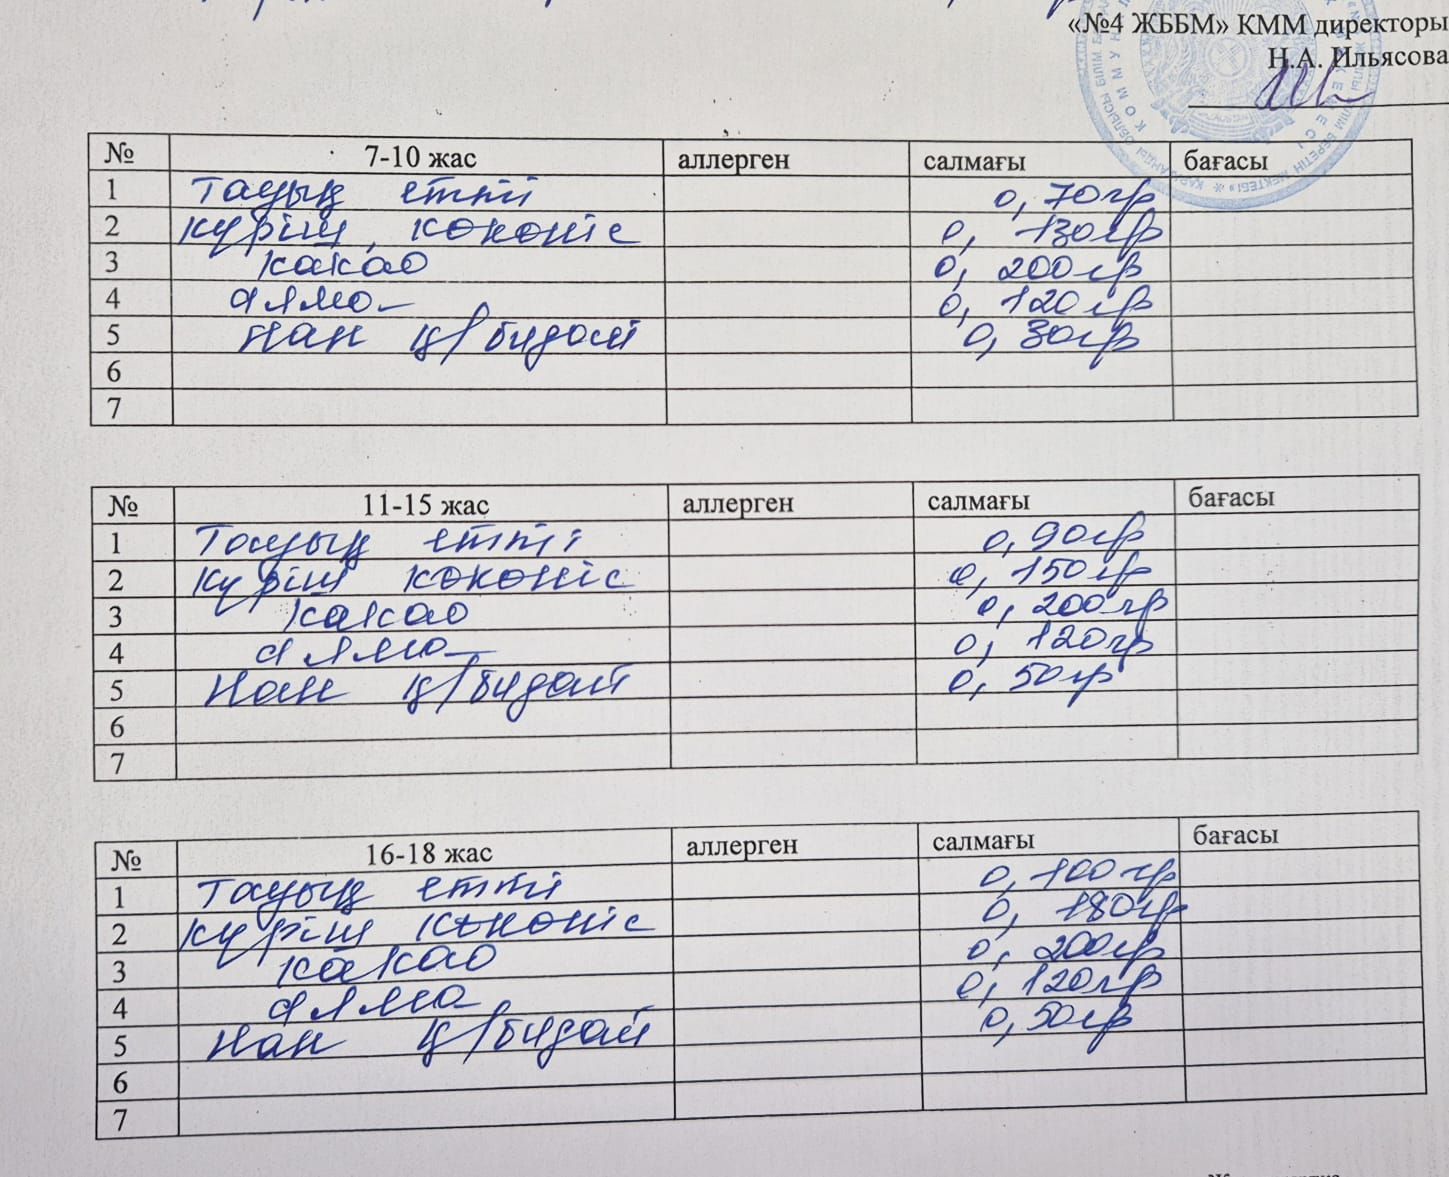 «№4 ЖББМ» КММ директоры
Н.А. Ильясова
№ 7-10 жас аллерген салмағы бағасы
1 Тауық етті 0,70гр
2 күріш, көкөніс 0, 130гр
3 какао 0, 200гр
4 алма 0, 120гр
5 нан ц/бидай 0, 30гр
6
7
№ 11-15 жас аллерген салмағы бағасы
1 Тауық етті 0,90гр
2 күріш көкөніс 0, 150гр
3 какао 0, 200гр
4 алма 0, 120гр
5 Нан ц/бидай 0, 50гр
6
7
№ 16-18 жас аллерген салмағы бағасы
1 Тауық етті 0, 100гр
2 күріш көкөніс 0, 180гр
3 какао 0, 200гр
4 алма 0, 120гр
5 Нан ц/бидай 0, 50гр
6
7